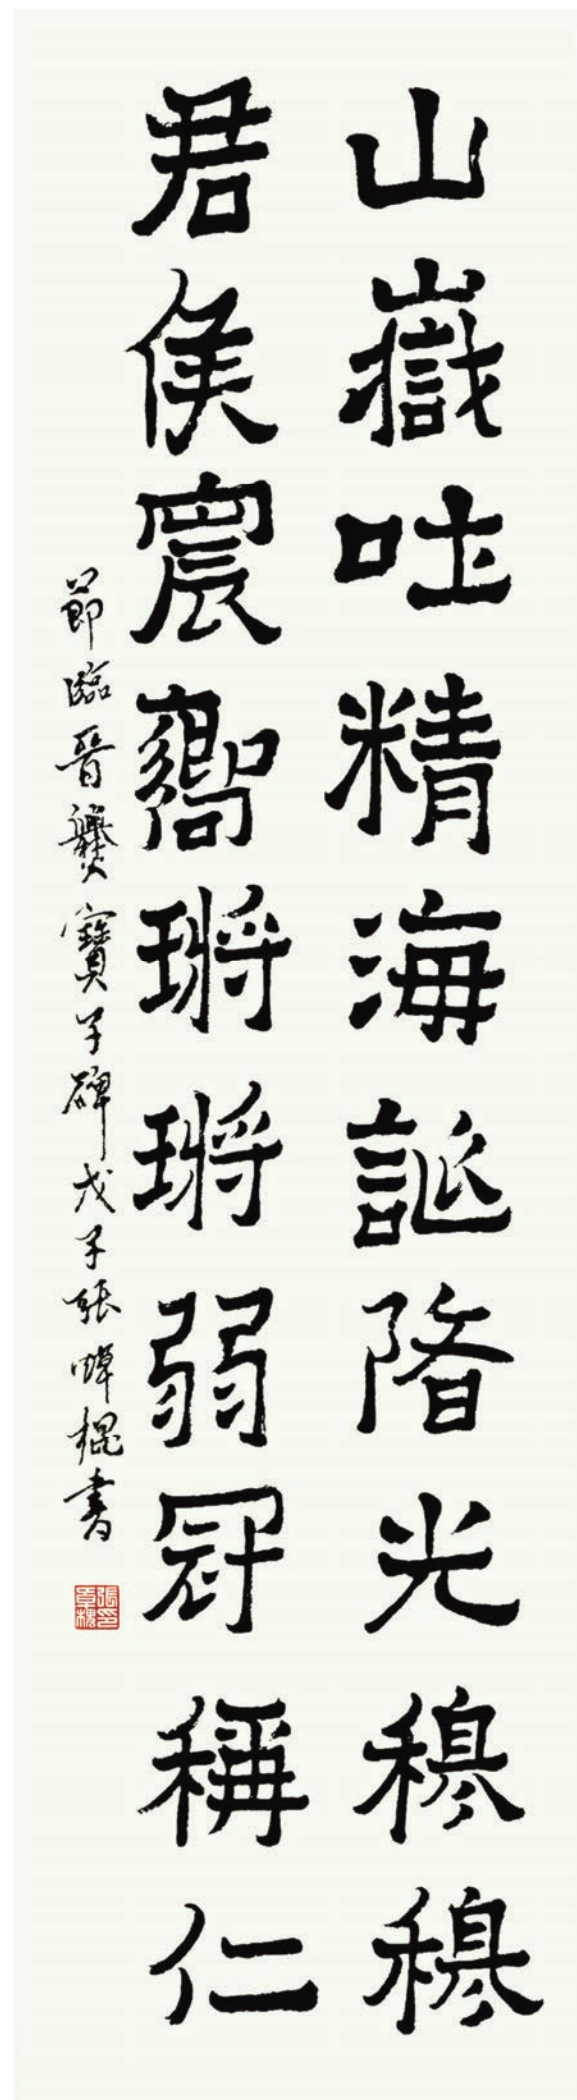 山嶽吐精海誕陼光穆穆
君侯震嚮鏘鏘弱冠稱仁
節臨晉爨寶子碑戊子張書